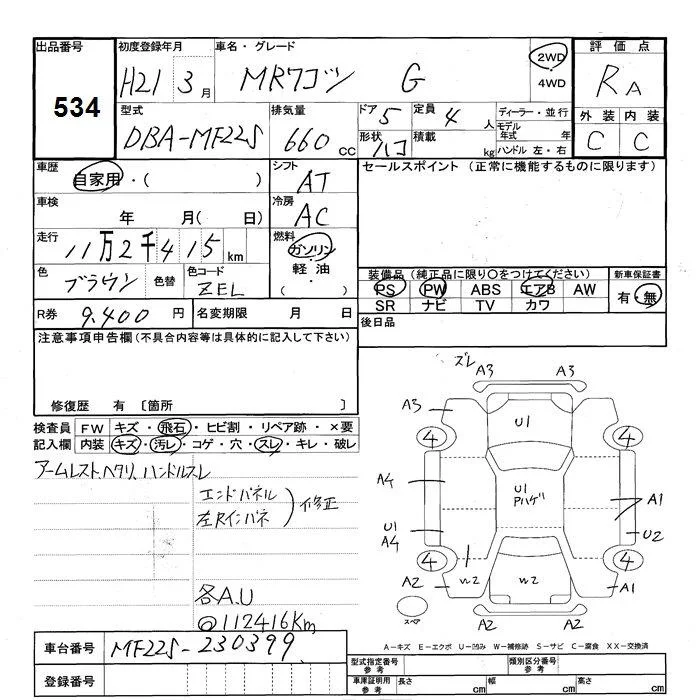 出品番号 初度登録年月 車名・グレード 評価点
534 H21 3月 MRワゴン G 2WD 4WD RA
型式 排気量 ドア 5 定員 4人 ディーラー・並行 外装 内装
DBA-MF22S 660cc 形状 ハコ 積載 kg モデル年式 年 C C
ハンドル 左・右
車歴 シフト セールスポイント (正常に機能するものに限ります)
自家用・( ) AT
車検 冷房
年 月( 日) AC
走行 燃料
11万2千415km ガソリン・軽油
色 色替 色コード ( ) 装備品 (純正品に限り○をつけてください) 新車保証書
ブラウン ZEL PS PW ABS エアB AW 有・無
SR ナビ TV カワ
R券 9,400円 名変期限 月 日 後日品
注意事項申告欄 (不具合内容等は具体的に記入して下さい)
修復歴 有 〔箇所 〕
検査員 FW キズ・飛石・ヒビ割・リペア跡・×要
記入欄 内装 キズ・汚レ・コゲ・穴・スレ・キレ・破レ
アームレスト、ヘタリ、ハンドルスレ
エンドパネル
左Rインパネ
修正
各A.U
@112416Km
ズレ
A3 A3
A3 A3
U1
4 4
A4 U1 Pハゲ A1
U1 A4 U2
4 4
A2 W2 W2 A1
スペア A2 A2
A-キズ E-エクボ U-凹み W-補修跡 S-サビ C-腐食 XX-交換済
車台番号 MF22S-230399
型式指定番号 参考 類別区分番号 参考
登録番号 車庫証明用 参考 長さ cm 幅 cm 高さ cm